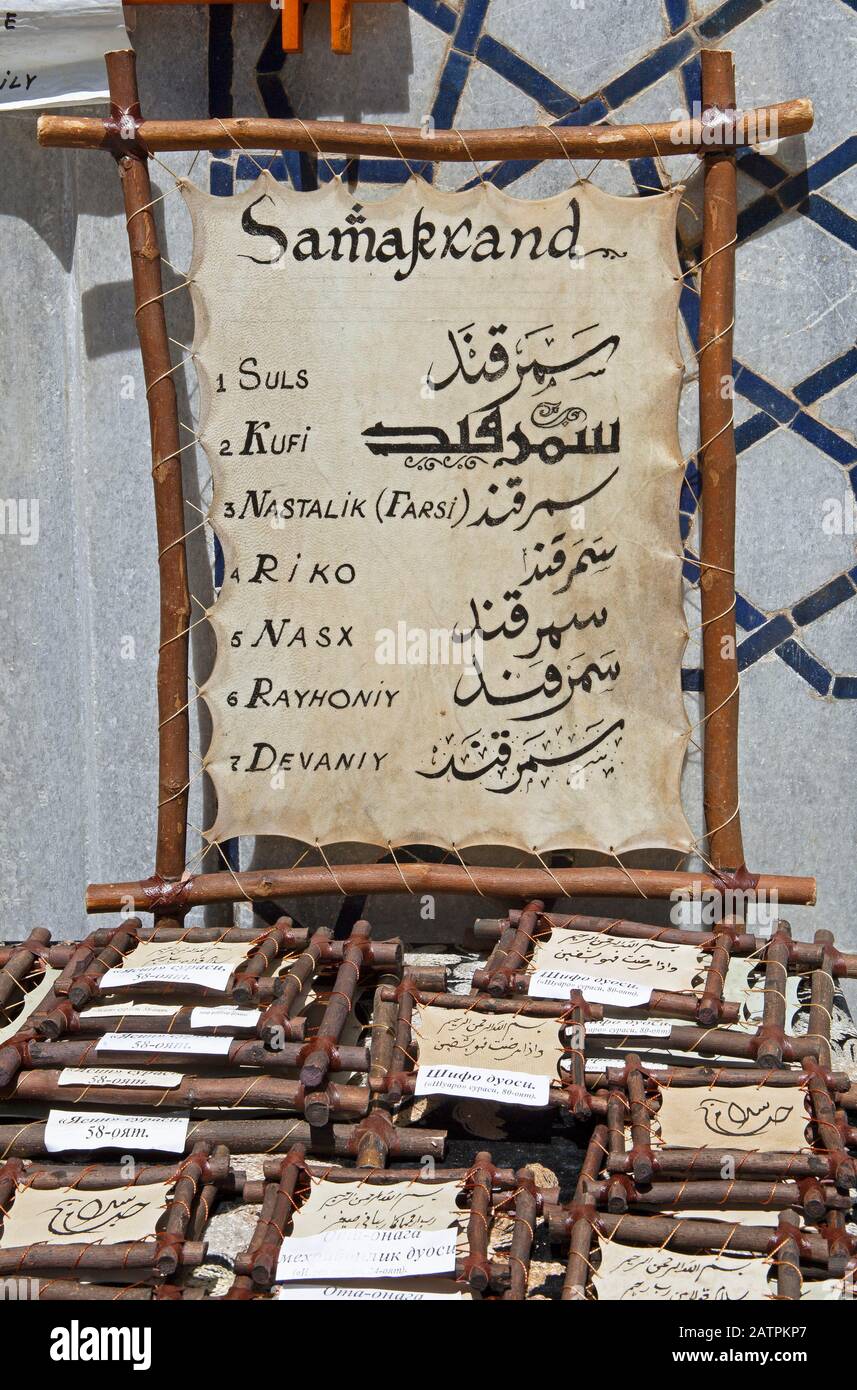 E
ILY
Samarkand
1 SULS سَمَرقَند
2 KUFI سمرقند
3 NASTALIK (FARSI) سمرقند
4 RIKO سَمَرقَند
5 NASX سمرقند
6 RAYHONIY سَمَرقَند
7 DEVANIY سَمَرقَند
«Ясин» сураси.
58-оят.
58-оят.
58-оят.
«Ясин» сураси.
58-оят.
بسم الله الرحمن الرحيم
واذا مرضت فهو يشفين
Шифо дуоси.
(«Шуаро» сураси, 80-оят)
بسم الله الرحمن الرحيم
واذا مرضت فهو يشفين
Шифо дуоси.
(«Шуаро» сураси, 80-оят).
بسم الله الرحمن الرحيم
Ота-онага
меҳрибонлик дуоси
Ота-онага
بسم الله الرحمن الرحيم
alamy
Image ID: 2ATPKP7
www.alamy.com